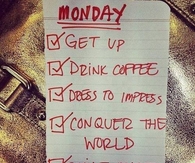 MONDAY
GET UP
DRINK COFFEE
DRESS TO IMPRESS
CONQUER THE
WORLD